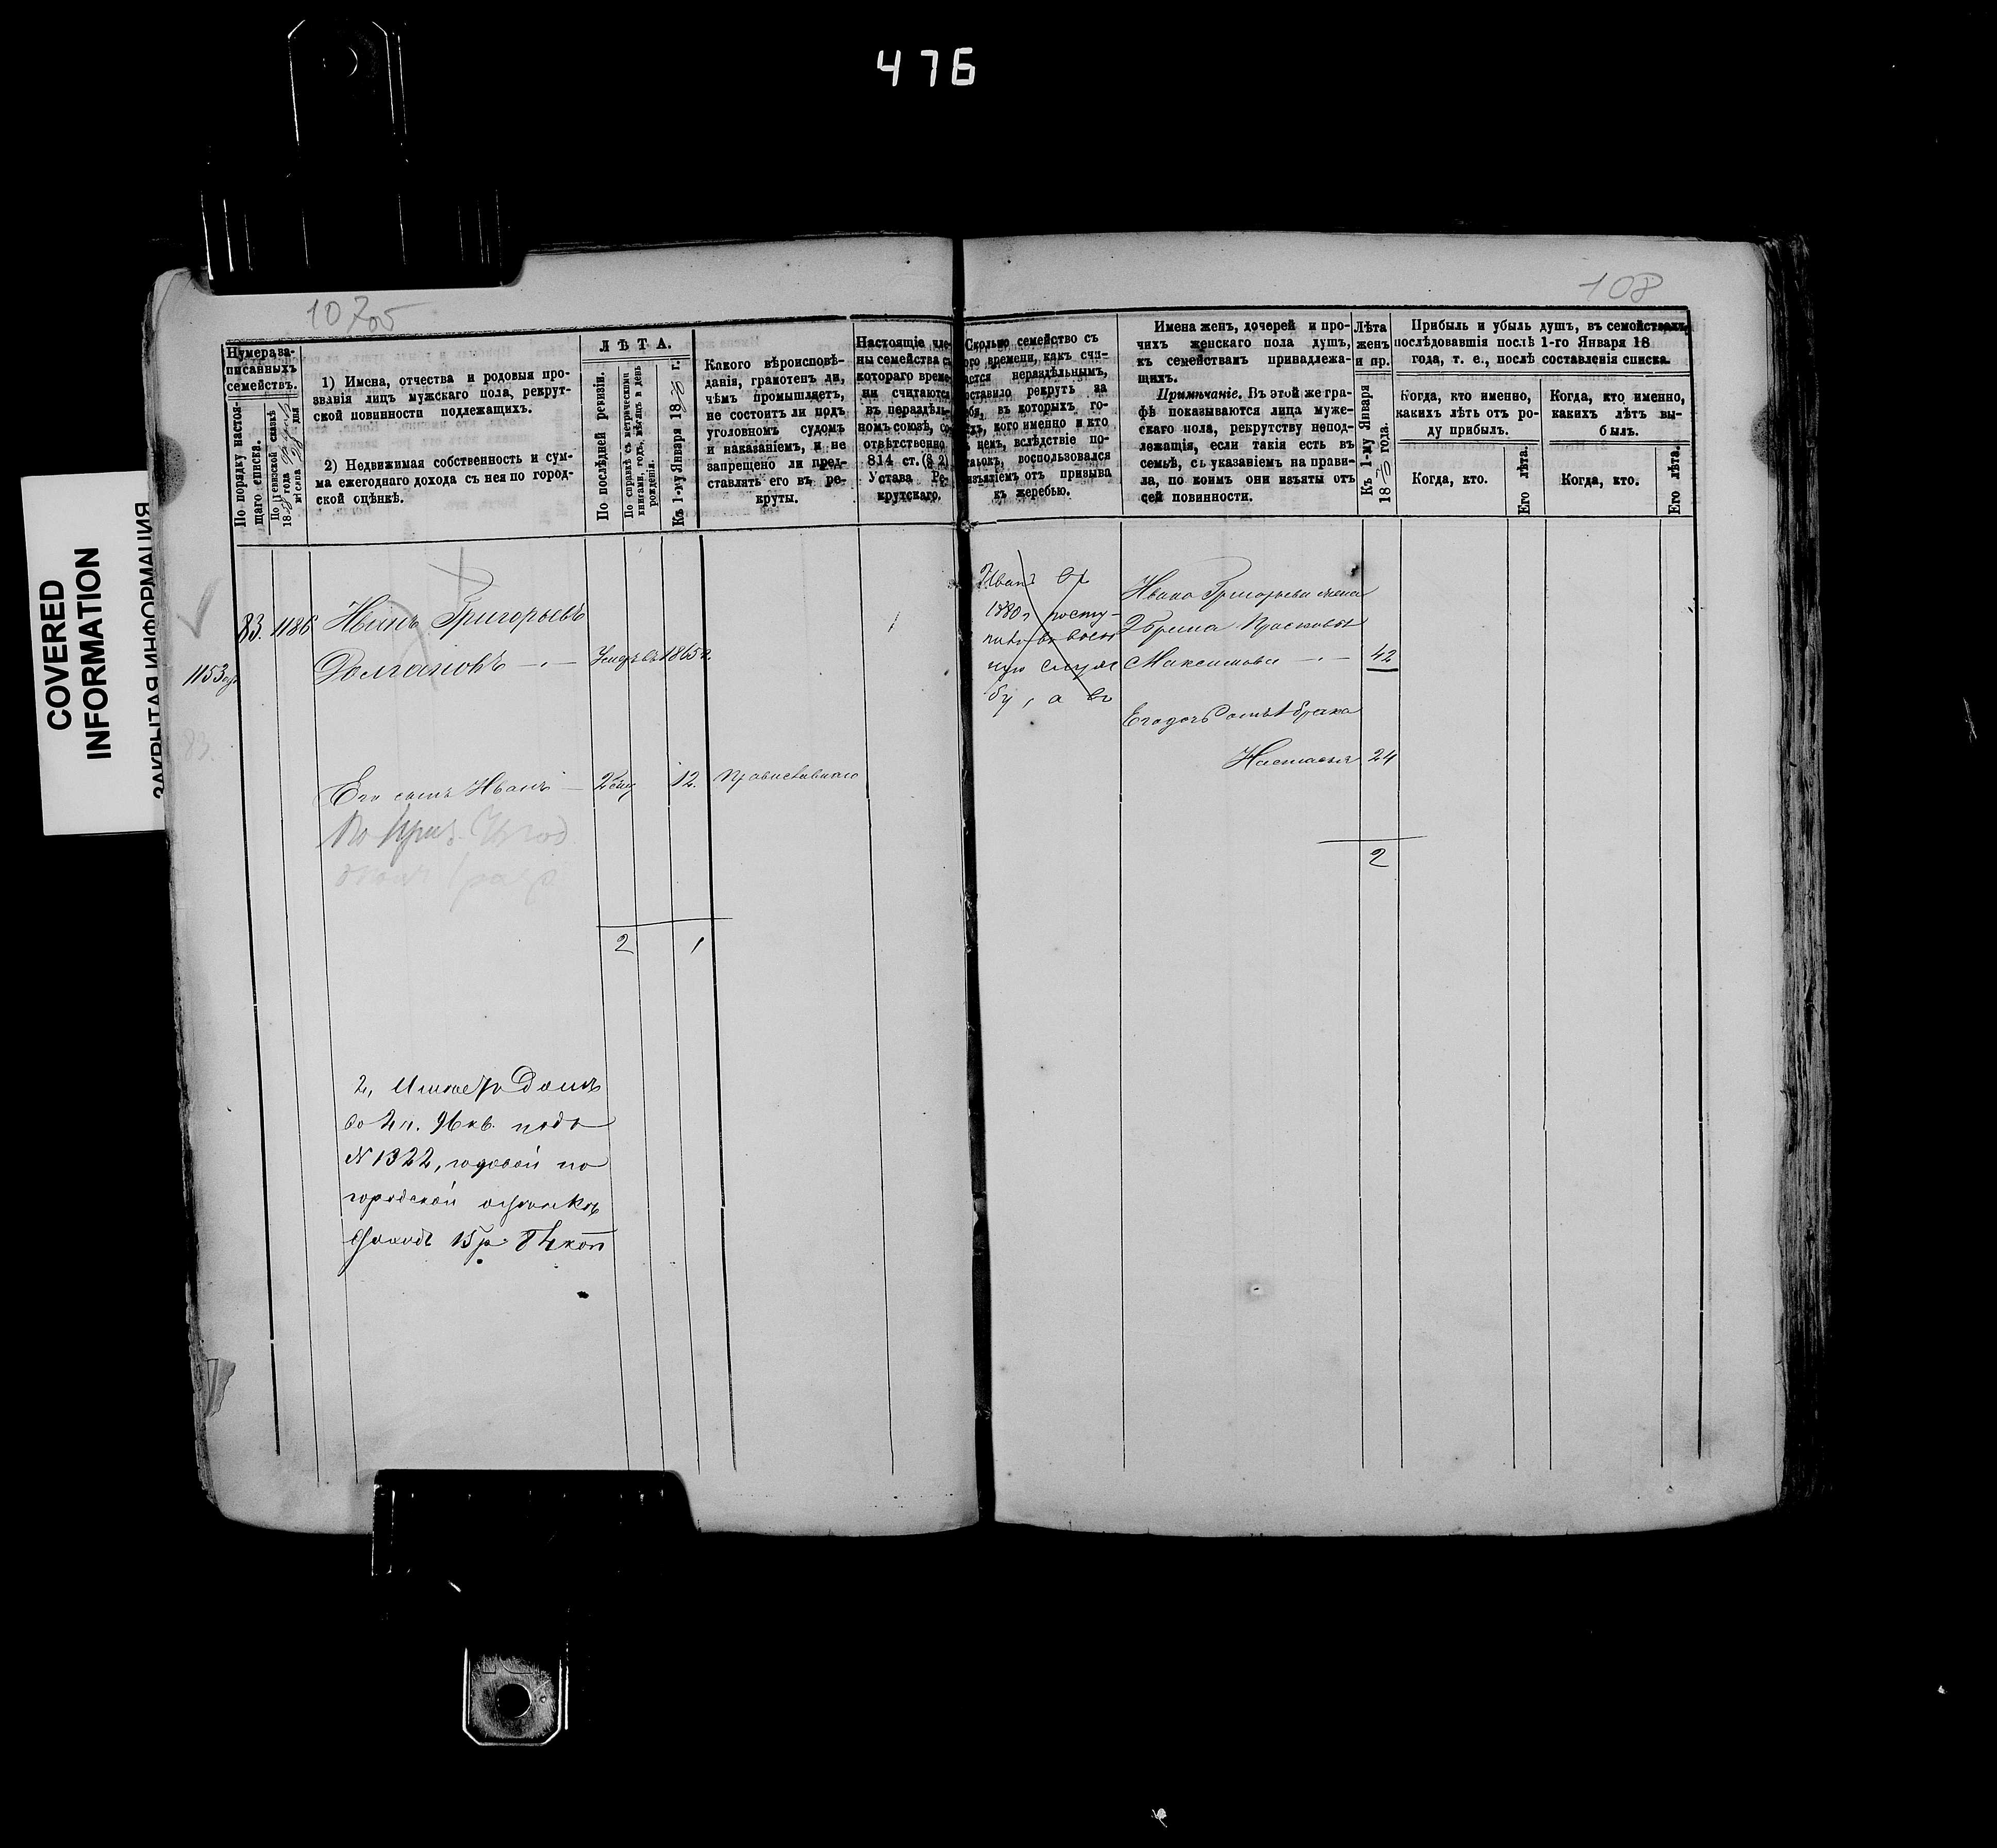 476
COVERED
INFORMATION
ЗАКРЫТАЯ ИНФОРМАЦИЯ
107об
108
Нумера за-
писанныхъ
семействъ.
По порядку настоя-
щаго списка.
По ревизской сказкѣ
18 года
мѣсяца дня
1) Имена, отчества и родовыя про-
званія лицъ мужскаго пола, рекрут-
ской повинности подлежащихъ.
2) Недвижимая собственность и сум-
ма ежегоднаго дохода съ нея по город-
ской оцѣнкѣ.
ЛѢТА.
По послѣдней ревизіи.
По справкѣ съ метрическими
книгами, годъ, мѣсяцъ и день
рожденія.
Къ 1-му Января 18 г.
Какого вѣроисповѣ-
данія, грамотенъ ли,
чѣмъ промышляетъ,
не состоитъ ли подъ
уголовномъ судомъ
и наказаніемъ, и не
запрещено ли пред-
ставлять его въ ре-
круты.
Настоящіе чле-
ны семейства съ
котораго време-
ни считаются
въ нераздѣль-
номъ союзѣ, со-
отвѣтственно
814 ст. (§ 2)
Устава Ре-
крутскаго.
Сколько семейство съ
того времени, какъ счи-
тается нераздѣльнымъ,
поставило рекрутъ за
себя, въ которыхъ го-
дахъ, кого именно и кто
въ немъ, вслѣдствіе по-
изъятіемъ отъ призыва
къ жеребью.
Имена женъ, дочерей и про-
чихъ женскаго пола душъ,
къ семействамъ принадлежа-
щихъ.
Примѣчаніе. Въ этой же гра-
фѣ показываются лица муже-
скаго пола, рекрутству непод-
лежащія, если такія есть въ
семьѣ, съ указаніемъ на прави-
ла, по коимъ они изъяты отъ
сей повинности.
Лѣта
женъ
и пр.
Къ 1-му Января
18 года.
Прибыль и убыль душъ, въ семействахъ
послѣдовавшія послѣ 1-го Января 18
года, т. е., послѣ составленія списка.
Когда, кто именно,
какихъ лѣтъ отъ ро-
ду прибылъ.
Когда, кто именно,
какихъ лѣтъ вы-
былъ.
Когда, кто.
Его лѣта.
Когда, кто.
Его лѣта.
83. 1186 Иванъ Григорьевъ
Долгановъ Умеръ въ 1865 г.
1153
83.
Его сынъ Иванъ 12. Православнаго
2 1
2, Имѣетъ Домъ
во 2 ч. 96 кв. подъ
N 1322, годовой по
городской оцѣнкѣ
доходъ 15 р. 84 коп
Иванъ въ
1880 г посту-
пилъ въ воен
ную служ
бу, а въ
Ивана Григорьева жена
2 брака Прасковья
Максимова 42
Его дочь отъ 1 брака
Настасья 24
2